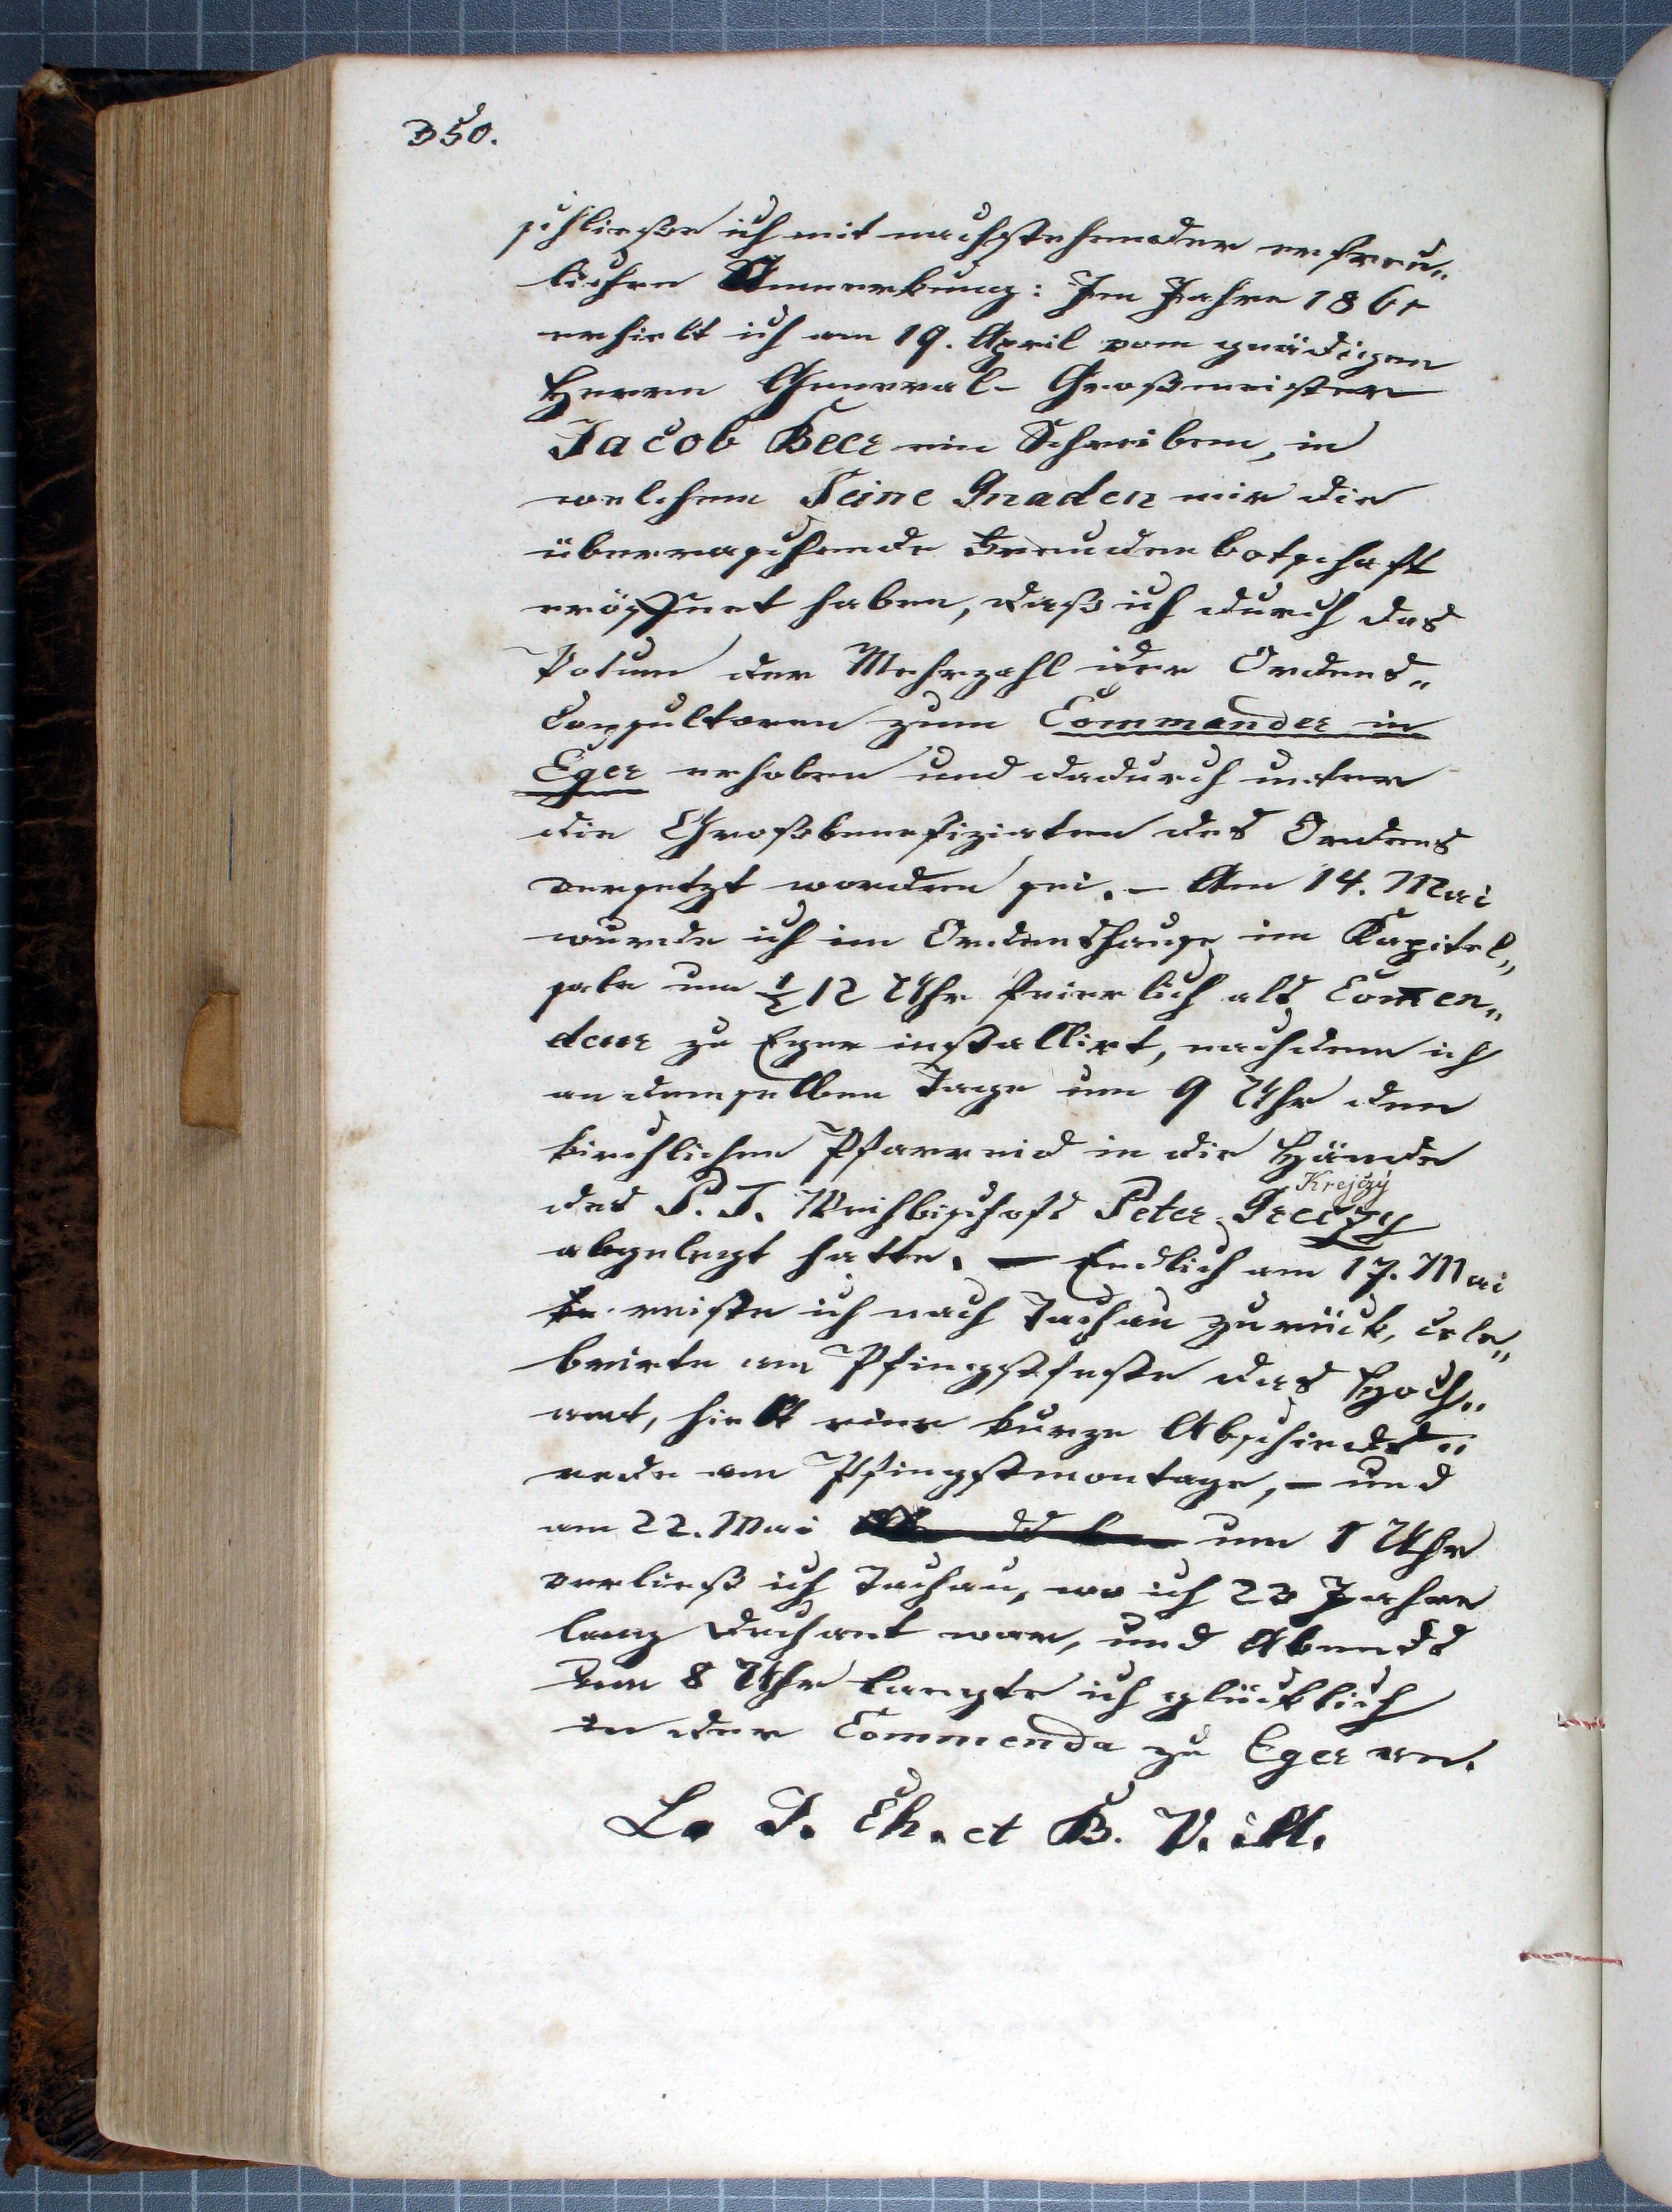 350.
schließe ich mit nachstehender erfreu„
lichen Anmerkung: Im Jahre 1861
erhielt ich am 19. April vom gnädigen
Herrn General-Großmeister
Jacob Beer ein Schreiben, in
welchem Seine Gnaden mir die
überraschende Freudenbotschaft
eröffnet haben, daß ich durch das
Votum der Mehrzahl der Ordens„
Consultoren zum Commander in
Eger erhoben und dadurch unter
die Großbenefiziaten des Ordens
versetzt worden sei. – Am 14. Mai
wurde ich im Ordenshause im Kapitel„
sale um ½ 12 Uhr feierlich als Comen„
deur zu Eger installirt, nachdem ich
an demselben Tage um 9 Uhr den
kirchlichen Pfarreid in die Hände
Krejczý
des P. T. Weihbischofs Peter
abgelegt hatte. – Endlich am 17. Mai
reiste ich nach Tachau zurück, cele„
brirte am Pfingstfeste das Hoch„
amt, hielt eine kurze Abschieds„
rede am Pfingstmontage, – und
am 22. Mai um 1 Uhr
verließ ich Tachau, wo ich 23 Jahre
lang Dechant war, und Abends
um 8 Uhr langte ich glücklich
in der Commenda zu Eger an.
L. J. Ch. et B. V. M.